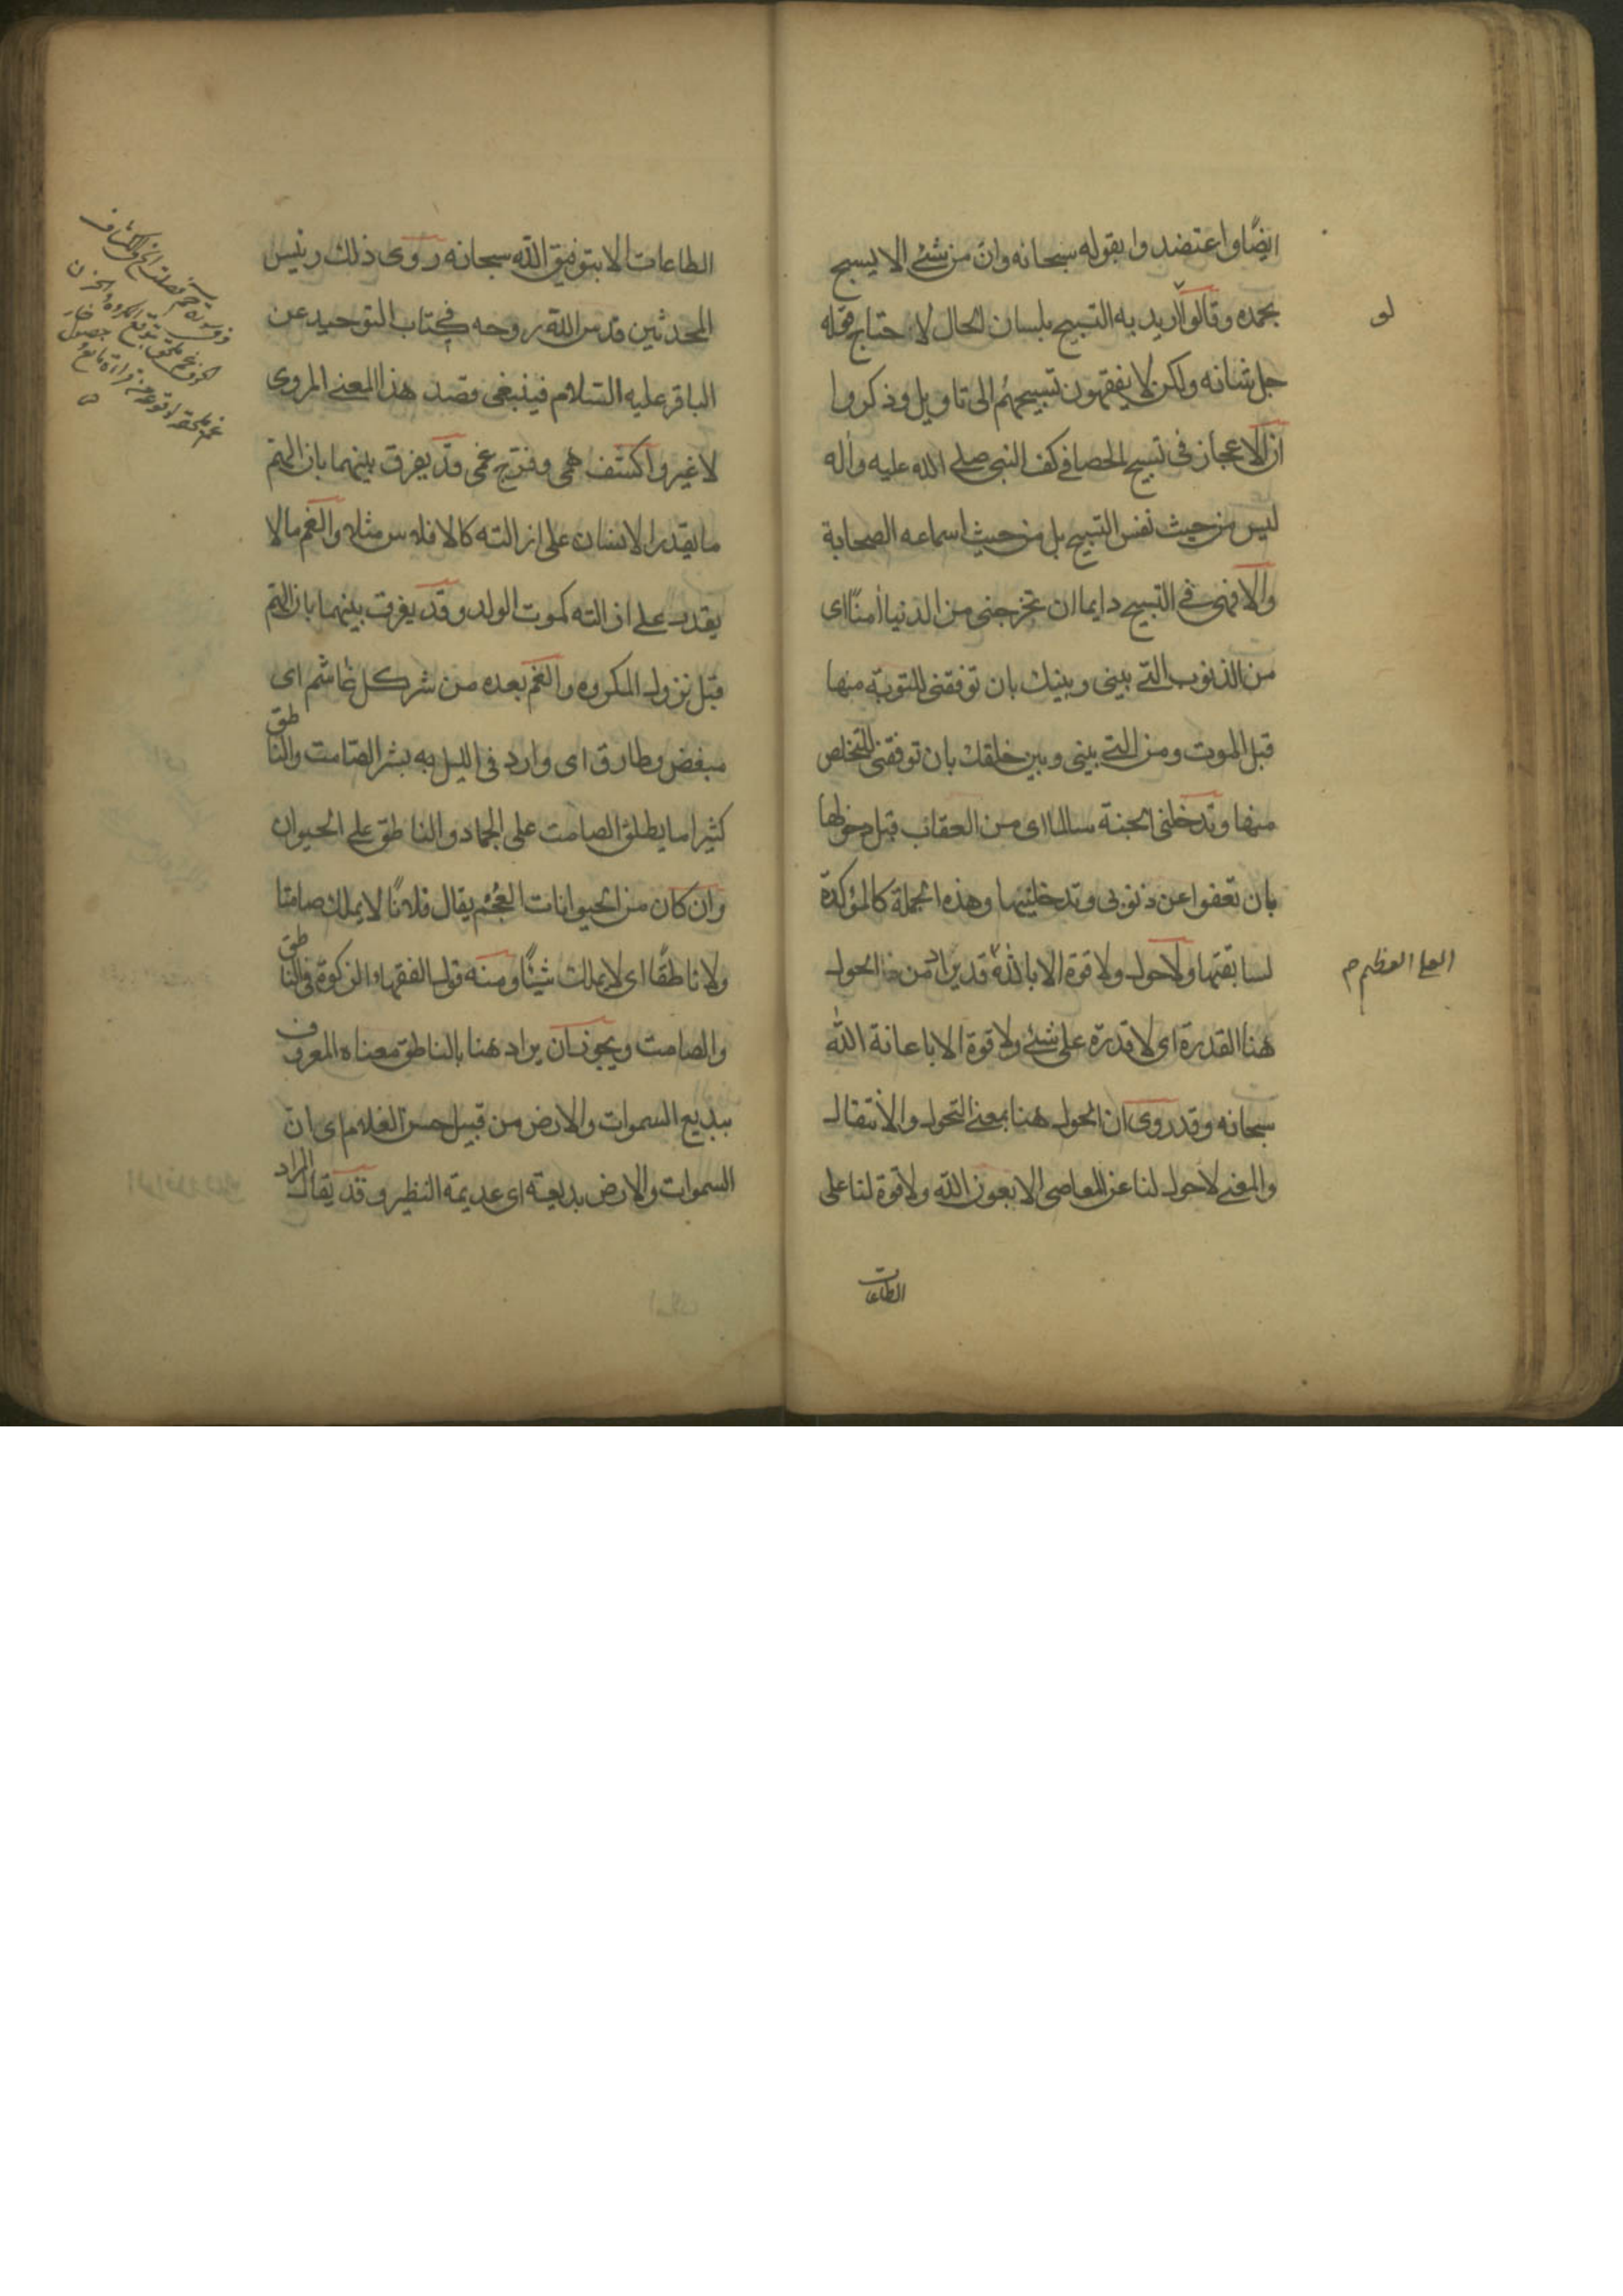 ايضًا واعتضدوا بقوله سبحانه وان من شئ الا يسبح
بحمده وقالوا لاريد به التسبيح بلسان الحال لاحتاج قوله
لو
جل شانه ولكن لا يفقهون تسبيحهم الى تاويل وذكروا
ان الاعجاز فى تسبيح الحصا في كف النبى صلى الله عليه واله
ليس من حيث نفس التسبيح بل من حيث اسماعه الصحابة
والا فهى في التسبيح دايما ان تخرجنى من الدنيا امنًا اى
من الذنوب التى بينى وبينك بان توفقنى للتوبة منها
قبل الموت ومن التى بينى وبين خلقك بان توفقنى للتخلص
منها وتدخلنى الجنة سالما اى من العقاب قبل دخولها
بان تعفوا عن ذنوبى وتدخلنيها وهذه الجملة كالمؤكدة
لسابقتها ولاحول ولا قوة الا بالله قد يراد من الحول
العلى العظيم م
هنا القدرة اى لا قدرة على شئ ولا قوة الا باعانة الله
سبحانه وقد روى ان الحول هنا بمعنى التحول والانتقال
والمعنى لاحول لنا عن المعاصى الا بعون الله ولا قوة لنا على
الطاعات
الطاعات الا بتوفيق الله سبحانه روى ذلك رئيس
المحدثين قدس الله روحه في كتاب التوحيد عن
الباقر عليه السلام فينبغى قصد هذا المعنى المروى
لا غير واكشف همى وفرج غمى وقد يفرق بينهما بان الهم
ما يقدر الانسان على ازالته كالافلاس مثلا والغم ما لا
يقدر على ازالته كموت الولد وقد يفرق بينهما بان الهم
قبل نزول المكروه والغم بعده من شر كل غاشم اى
مبغض وطارق اى وارد فى الليل به بشر الصامت والناطق
كثيرا ما يطلق الصامت على الجماد والناطق على الحيوان
وان كان من الحيوانات العُجْم يقال فلانًا لا يملك صامتا
ولا ناطقًا اى لا يملك شيئًا ومنه قول الفقهاء الزكوة فى الناطق
والصامت ويجوز ان يراد هنا بالناطق معناه المعروف
ببديع السموات والارض من قبيل حسن الغلام اى ان
السموات والارض بديعة اى عديمة النظير وقد يقال المراد